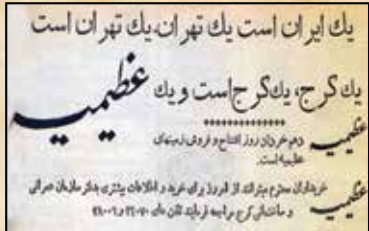 یك ایران است یك تهران، یك تهران است
یك کرج، یك کرج است و یك عظیمیه
عظیمیه دهم خرداد روز افتتاح و فروش زمینهای
عظیمیه است.
عظیمیه خریداران محترم میتوانند از امروز برای خرید و اطلاعات بیشتری بدفتر سازمان عمرانی
و ساختمانی کرج مراجعه فرمایند تلفن های